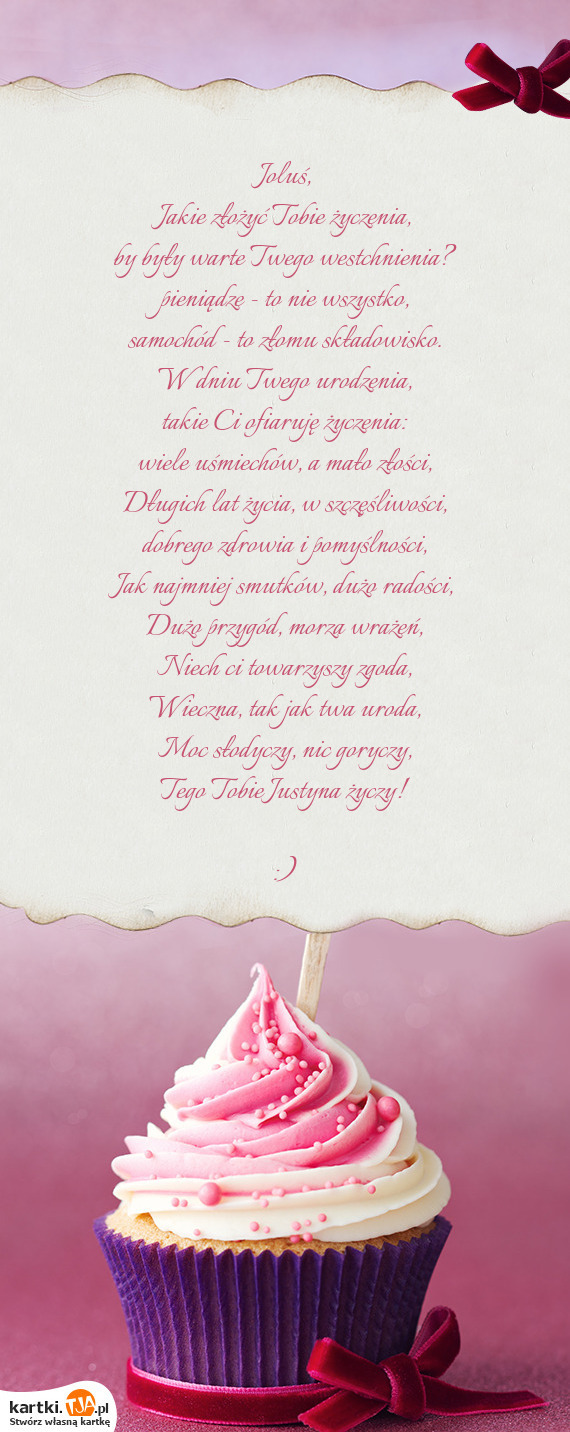 Joluś,
Jakie złożyć Tobie życzenia,
by były warte Twego westchnienia?
pieniądze - to nie wszystko,
samochód - to złomu składowisko.
W dniu Twego urodzenia,
takie Ci ofiaruję życzenia:
wiele uśmiechów, a mało złości,
Długich lat życia, w szczęśliwości,
dobrego zdrowia i pomyślności,
Jak najmniej smutków, dużo radości,
Dużo przygód, morza wrażeń,
Niech ci towarzyszy zgoda,
Wieczna, tak jak twa uroda,
Moc słodyczy, nic goryczy,
Tego Tobie Justyna życzy!
:)
kartki.TJA.pl
Stwórz własną kartkę